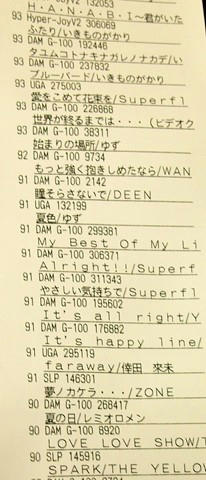 93 Hyper-JoyV2 132053
H・A・N・A・B・I ～君がいた
93 Hyper-JoyV2 306069
ふたり/いきものがかり
93 DAM G-100 192446
タユムコトナキナガレノナカデ/い
93 DAM G-100 237832
ブルーバード/いきものがかり
93 UGA 275003
愛をこめて花束を/Superfl
93 DAM G-100 226868
世界が終るまでは・・・(ビデオク
93 DAM G-100 38311
始まりの場所/ゆず
92 DAM G-100 9734
もっと強く抱きしめたなら/WAN
91 DAM G-100 2142
瞳そらさないで/DEEN
91 UGA 132199
夏色/ゆず
91 DAM G-100 299381
My Best Of My Li
91 DAM G-100 306371
Alright!!/Superf
91 DAM G-100 311343
やさしい気持ちで/Superfl
91 DAM G-100 195602
It's all right/Y
91 DAM G-100 176882
It's happy line/
91 UGA 295119
faraway/倖田 來未
91 SLP 146301
夢ノカケラ・・・/ZONE
90 DAM G-100 268417
夏の日/レミオロメン
90 DAM G-100 8920
LOVE LOVE SHOW/T
90 SLP 145916
SPARK/THE YELLOW